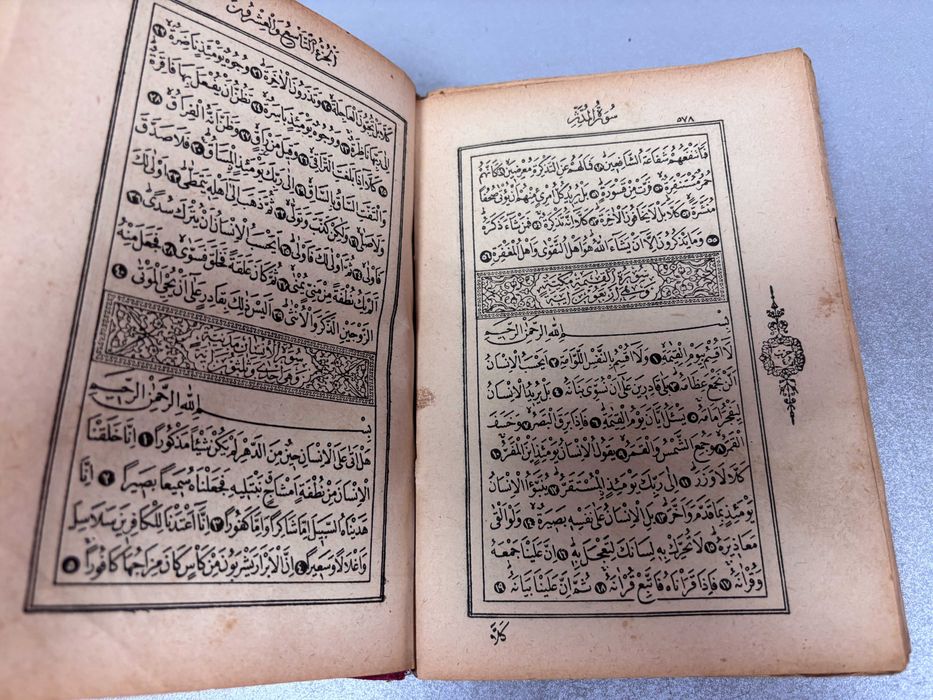 سورة المدثر
٥٧٨
فَمَا تَنْفَعُهُمْ شَفَاعَةُ الشَّافِعِينَ ٤٨ فَمَا لَهُمْ عَنِ التَّذْكِرَةِ مُعْرِضِينَ ٤٩ كَاَنَّهُمْ
حُمُرٌ مُسْتَنْفِرَةٌ ٥٠ فَرَّتْ مِنْ قَسْوَرَةٍ ٥١ بَلْ يُرِيدُ كُلُّ امْرِئٍ مِنْهُمْ اَنْ يُؤْتٰى صُحُفًا
مُنَشَّرَةً ٥٢ كَلَّا بَلْ لَا يَخَافُونَ الْاٰخِرَةَ ٥٣ كَلَّا اِنَّهُ تَذْكِرَةٌ ٥٤ فَمَنْ شَاءَ ذَكَرَهُ
٥٥ وَمَا يَذْكُرُونَ اِلَّا اَنْ يَشَاءَ اللّٰهُ هُوَ اَهْلُ التَّقْوٰى وَاَهْلُ الْمَغْفِرَةِ ٥٦
سورة القيمة مكية
وهي اربعون اية
بِسْمِ اللّٰهِ الرَّحْمٰنِ الرَّحِيمِ
لَا اُقْسِمُ بِيَوْمِ الْقِيٰمَةِ ١ وَلَا اُقْسِمُ بِالنَّفْسِ اللَّوَّامَةِ ٢ اَيَحْسَبُ الْاِنْسَانُ
اَلَّنْ نَجْمَعَ عِظَامَهُ ٣ بَلٰى قَادِرِينَ عَلٰى اَنْ نُسَوِّيَ بَنَانَهُ ٤ بَلْ يُرِيدُ الْاِنْسَانُ
لِيَفْجُرَ اَمَامَهُ ٥ يَسْـَٔلُ اَيَّانَ يَوْمُ الْقِيٰمَةِ ٦ فَاِذَا بَرِقَ الْبَصَرُ ٧ وَخَسَفَ
الْقَمَرُ ٨ وَجُمِعَ الشَّمْسُ وَالْقَمَرُ ٩ يَقُولُ الْاِنْسَانُ يَوْمَئِذٍ اَيْنَ الْمَفَرُّ ١٠
كَلَّا لَا وَزَرَ ١١ اِلٰى رَبِّكَ يَوْمَئِذٍ الْمُسْتَقَرُّ ١٢ يُنَبَّؤُا الْاِنْسَانُ
يَوْمَئِذٍ بِمَا قَدَّمَ وَاَخَّرَ ١٣ بَلِ الْاِنْسَانُ عَلٰى نَفْسِهِ بَصِيرَةٌ ١٤ وَلَوْ اَلْقٰى
مَعَاذِيرَهُ ١٥ لَا تُحَرِّكْ بِهِ لِسَانَكَ لِتَعْجَلَ بِهِ ١٦ اِنَّ عَلَيْنَا جَمْعَهُ
وَقُرْاٰنَهُ ١٧ فَاِذَا قَرَاْنَاهُ فَاتَّبِعْ قُرْاٰنَهُ ١٨ ثُمَّ اِنَّ عَلَيْنَا بَيَانَهُ ١٩
كَلَّا
الجزء التاسع والعشرون
كَلَّا بَلْ تُحِبُّونَ الْعَاجِلَةَ ٢٠ وَتَذَرُونَ الْاٰخِرَةَ ٢١ وُجُوهٌ يَوْمَئِذٍ نَاضِرَةٌ ٢٢
اِلٰى رَبِّهَا نَاظِرَةٌ ٢٣ وَوُجُوهٌ يَوْمَئِذٍ بَاسِرَةٌ ٢٤ تَظُنُّ اَنْ يُفْعَلَ بِهَا فَاقِرَةٌ
٢٥ كَلَّا اِذَا بَلَغَتِ التَّرَاقِيَ ٢٦ وَقِيلَ مَنْ رَاقٍ ٢٧ وَظَنَّ اَنَّهُ الْفِرَاقُ ٢٨
وَالْتَفَّتِ السَّاقُ بِالسَّاقِ ٢٩ اِلٰى رَبِّكَ يَوْمَئِذٍ الْمَسَاقُ ٣٠ فَلَا صَدَّقَ
وَلَا صَلّٰى ٣١ وَلٰكِنْ كَذَّبَ وَتَوَلّٰى ٣٢ ثُمَّ ذَهَبَ اِلٰى اَهْلِهِ يَتَمَطّٰى ٣٣ اَوْلٰى لَكَ
فَاَوْلٰى ٣٤ ثُمَّ اَوْلٰى لَكَ فَاَوْلٰى ٣٥ اَيَحْسَبُ الْاِنْسَانُ اَنْ يُتْرَكَ سُدًى ٣٦
اَلَمْ يَكُ نُطْفَةً مِنْ مَنِيٍّ يُمْنٰى ٣٧ ثُمَّ كَانَ عَلَقَةً فَخَلَقَ فَسَوّٰى ٣٨ فَجَعَلَ مِنْهُ
الزَّوْجَيْنِ الذَّكَرَ وَالْاُنْثٰى ٣٩ اَلَيْسَ ذٰلِكَ بِقَادِرٍ عَلٰى اَنْ يُحْيِيَ الْمَوْتٰى ٤٠
سورة الانسان مدنية
وهي احدى وثلثون اية
بِسْمِ اللّٰهِ الرَّحْمٰنِ الرَّحِيمِ
هَلْ اَتٰى عَلَى الْاِنْسَانِ حِينٌ مِنَ الدَّهْرِ لَمْ يَكُنْ شَيْئًا مَذْكُورًا ١ اِنَّا خَلَقْنَا
الْاِنْسَانَ مِنْ نُطْفَةٍ اَمْشَاجٍ نَبْتَلِيهِ فَجَعَلْنَاهُ سَمِيعًا بَصِيرًا ٢ اِنَّا
هَدَيْنَاهُ السَّبِيلَ اِمَّا شَاكِرًا وَاِمَّا كَفُورًا ٣ اِنَّا اَعْتَدْنَا لِلْكَافِرِينَ سَلَاسِلَ
وَاَغْلَالًا وَسَعِيرًا ٤ اِنَّ الْاَبْرَارَ يَشْرَبُونَ مِنْ كَاْسٍ كَانَ مِزَاجُهَا كَافُورًا ٥